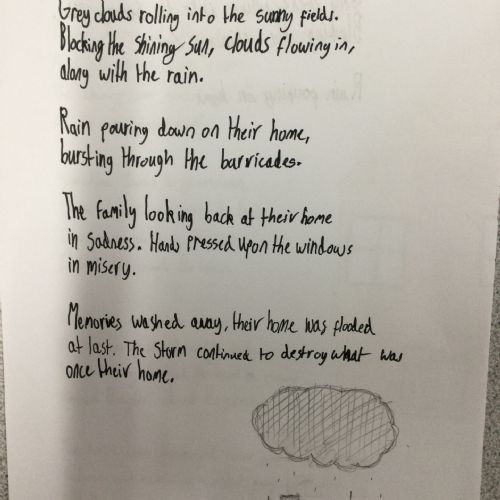 Grey clouds rolling into the sunny fields.
Blocking the shining sun, clouds flowing in,
along with the rain.
Rain pouring down on their home,
bursting through the barricades.
The family looking back at their home
in sadness. Hands pressed upon the windows
in misery.
Memories washed away, their home was flooded
at last. The storm continued to destroy what was
once their home.